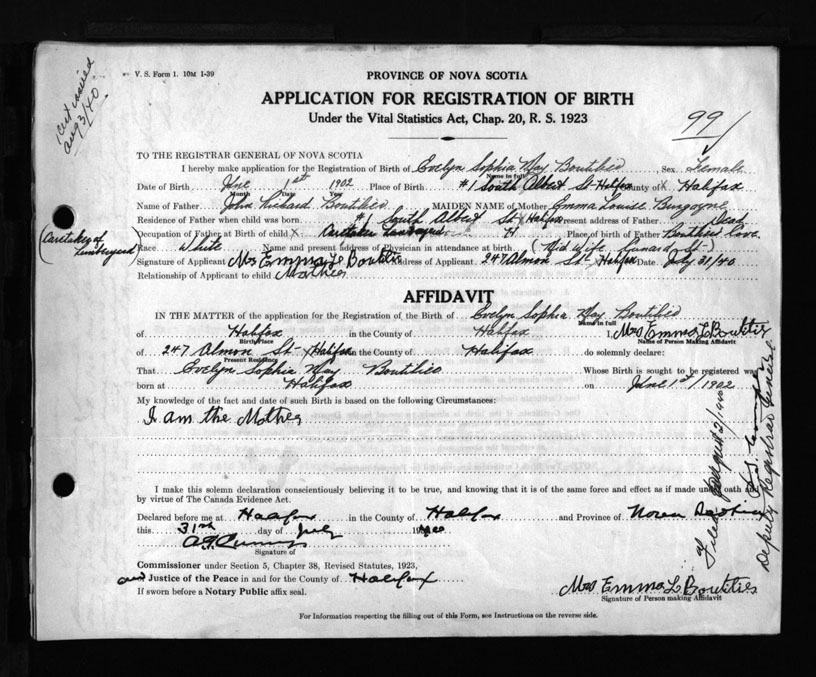 V. S. Form 1. 10M 1-39
Aug 3/40
PROVINCE OF NOVA SCOTIA
APPLICATION FOR REGISTRATION OF BIRTH
Under the Vital Statistics Act, Chap. 20, R. S. 1923
99
TO THE REGISTRAR GENERAL OF NOVA SCOTIA
I hereby make application for the Registration of Birth of Evelyn Sophia May Boutilier, Sex Female
Name in full
Date of Birth June 1st 1902 Place of Birth #1 South Albert St Halifax County of Halifax
Month Day Year
Name of Father John Richard Boutilier MAIDEN NAME of Mother Emma Louise Burgoyne
Residence of Father when child was born #1 South Albert St Halifax Present address of Father Dead
(Caretaker of Lumberyard) Occupation of Father at Birth of child Caretaker H Place of birth of Father Boutilier Cove
Race White Name and present address of Physician in attendance at birth (Mid Wife St-)
Signature of Applicant Mrs Emma L Boutilier Address of Applicant 247 Almon St Halifax Date July 31/40
Relationship of Applicant to child Mother
AFFIDAVIT
IN THE MATTER of the application for the Registration of the Birth of Evelyn Sophia May Boutilier
Name in full
of Halifax in the County of Halifax I, Mrs Emma L Boutilier
Birth Place Name of Person Making Affidavit
of 247 Almon St Halifax in the County of Halifax do solemnly declare:
Present Residence
That Evelyn Sophia May Boutilier Whose Birth is sought to be registered was
born at Halifax on June 1st/1902
My knowledge of the fact and date of such Birth is based on the following Circumstances:
I am the Mother
I make this solemn declaration conscientiously believing it to be true, and knowing that it is of the same force and effect as if made under oath and
by virtue of The Canada Evidence Act.
Declared before me at Halifax in the County of Halifax and Province of Nova Scotia
this 31st day of July 19
Signature of
Commissioner under Section 5, Chapter 38, Revised Statutes, 1923,
and Justice of the Peace in and for the County of Halifax
If sworn before a Notary Public affix seal.
Mrs Emma L Boutilier
Signature of Person making Affidavit
For Information respecting the filling out of this Form, see Instructions on the reverse side.
Filed August 2/1940
Deputy Registrar General